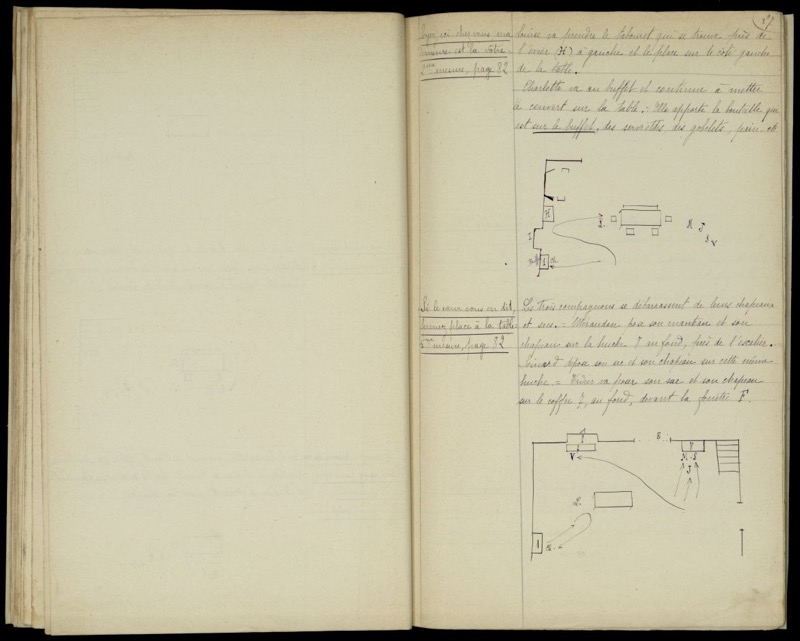 27
Soyez ici chez vous ma
demeure est la vôtre
2ème mesure, page 82
Louise va prendre le tabouret qui se trouve près de
l'évier (H) à gauche et le place sur le côté gauche
de la table.
Charlotte va au buffet et continue à mettre
le couvert sur la table. Elle apporte la bouteille qui
est sur le buffet, des serviettes des gobelets, pain etc
H
I
L
M J
V
Si le cœur vous en dit,
prenez place à la table
2ème mesure, page 82
Les trois compagnons se débarrassent de leurs chapeaux
et sacs. = pose son manteau et son
chapeau sur la huche Y au fond, près de l'escalier.
dépose son sac et son chapeau sur cette même
huche. = va poser son sac et son chapeau
sur le coffre Z, au fond, devant la fenêtre F.
V
Y
M J
J
L